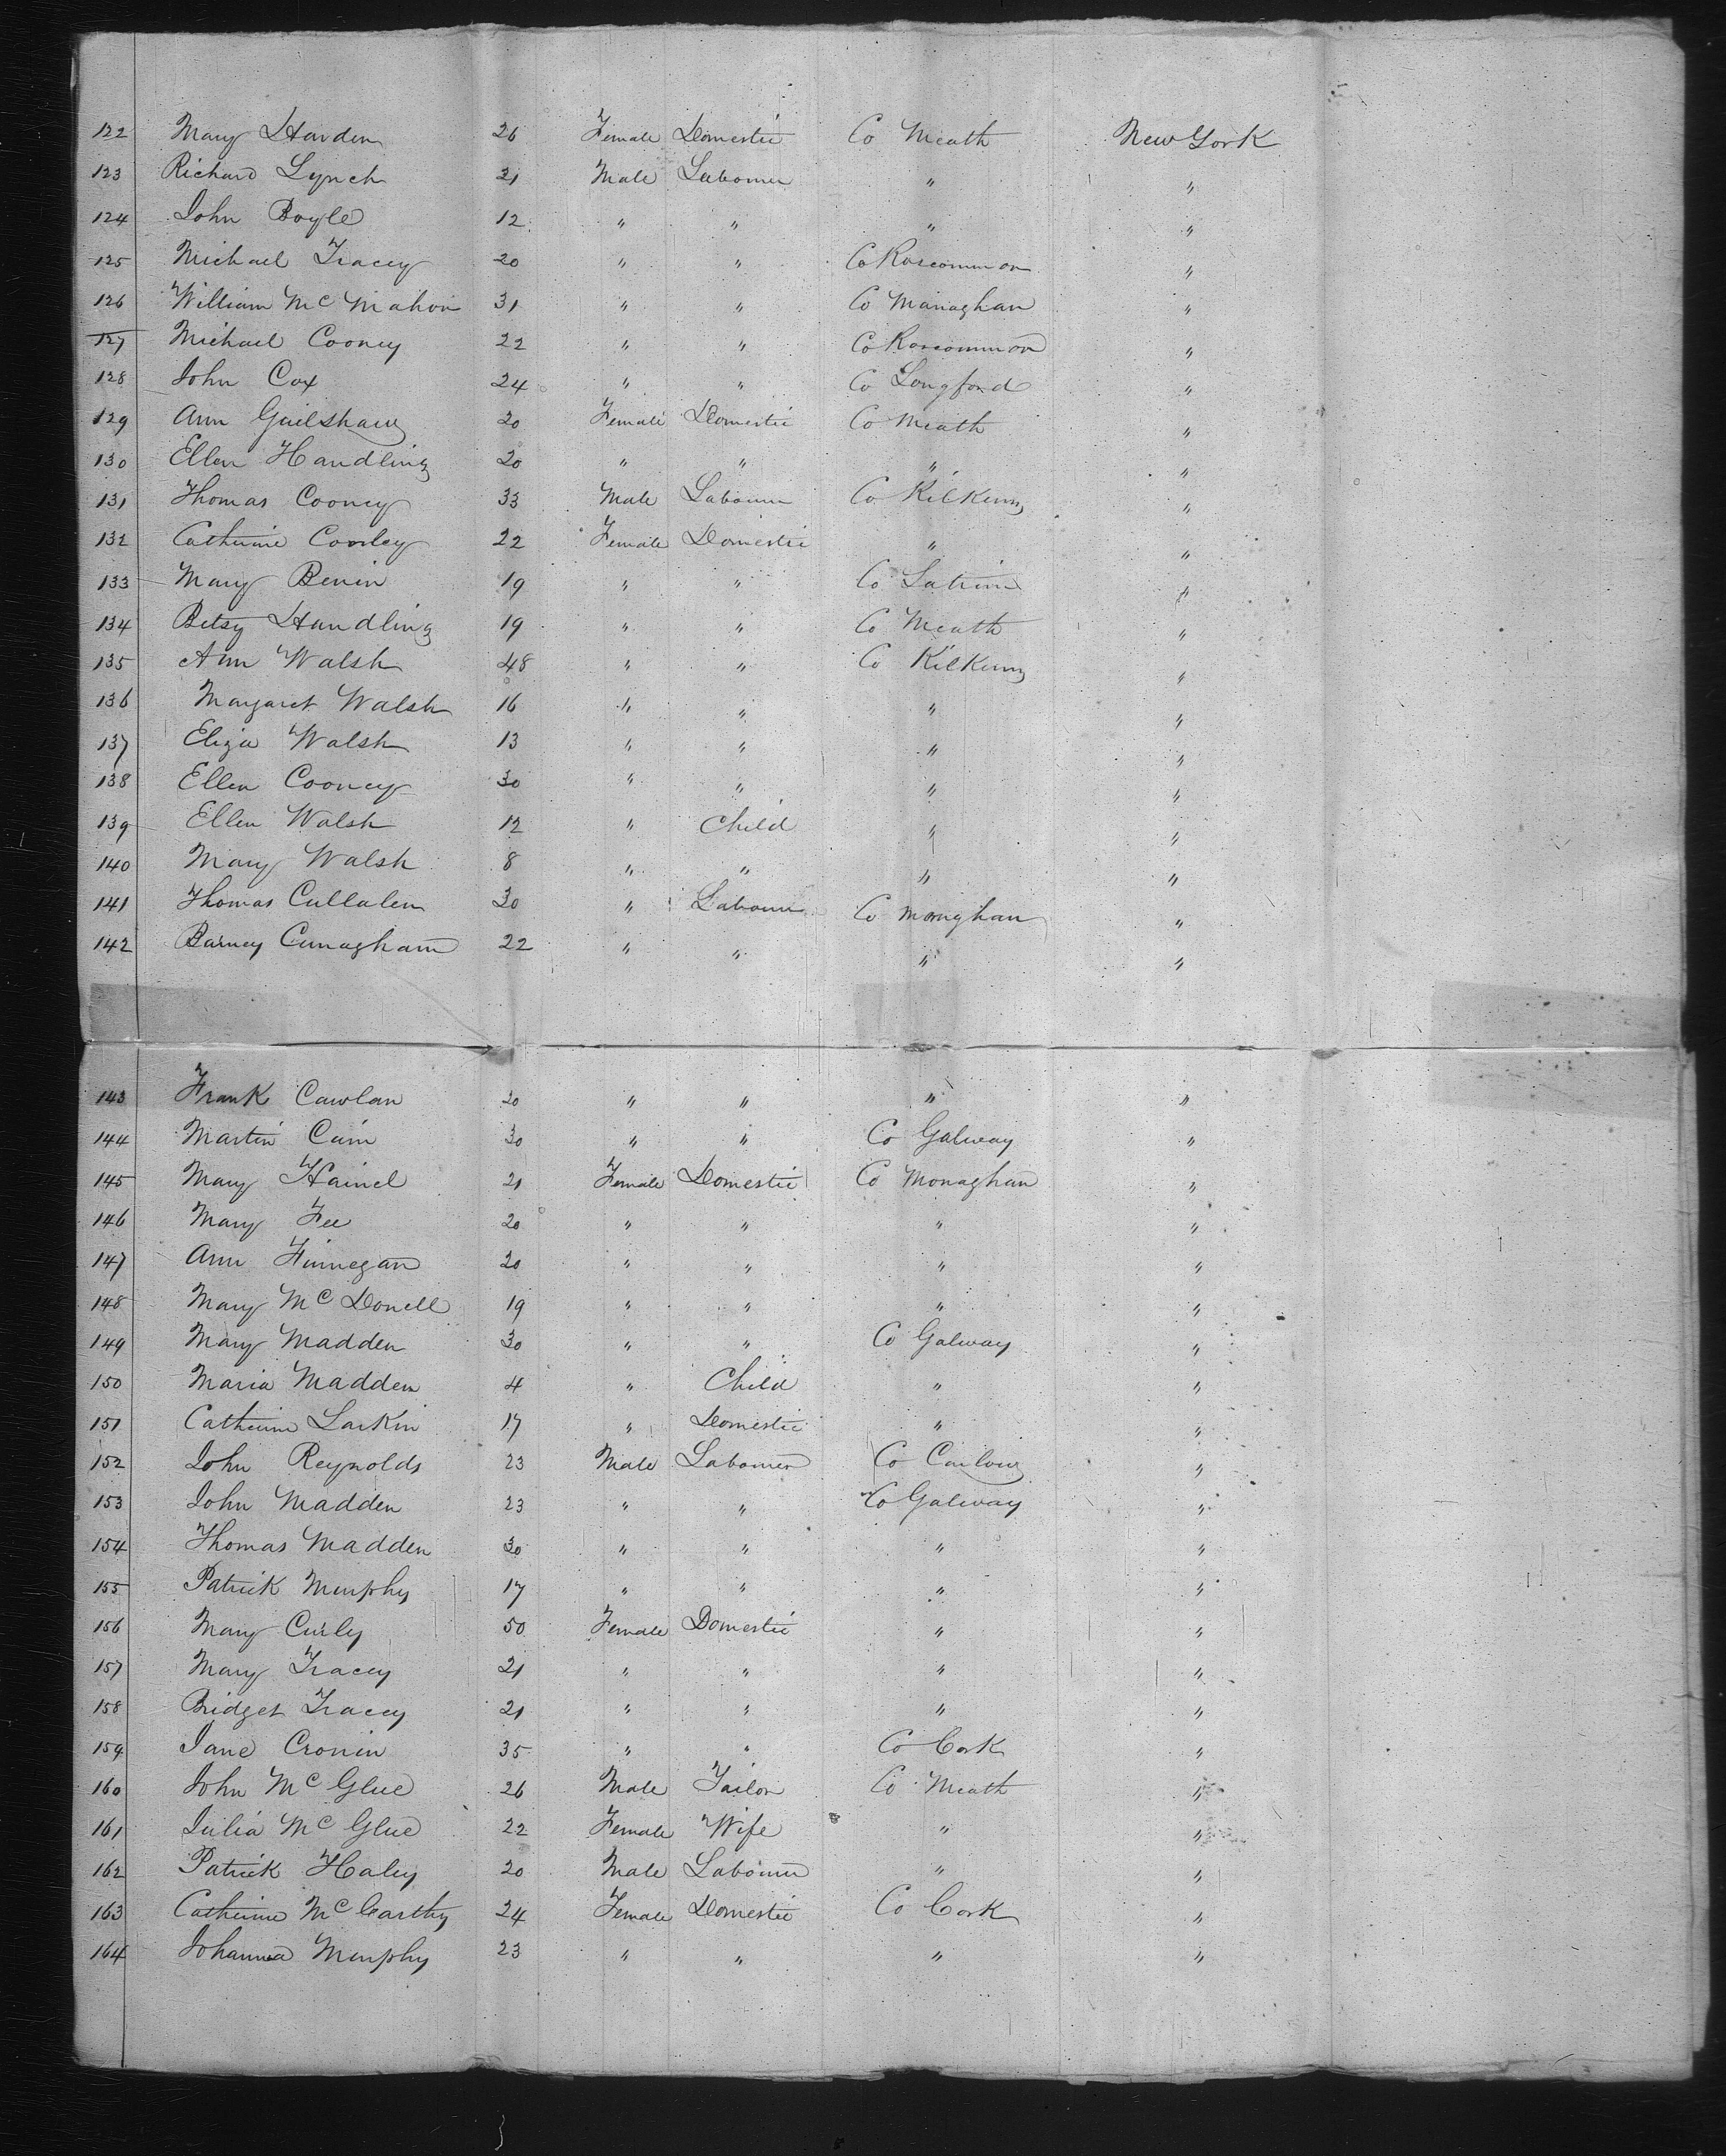 122 Mary Harden 26 Female Domestic Co Meath New York
123 Richard Lynch 21 Male Labourer " "
124 John Boyle 12 " " " "
125 Michael Tracey 20 " " Co Roscommon "
126 William Mc Mahon 31 " " Co Managhan "
127 Michael Cooney 22 " " Co Roscommon "
128 John Cox 24 " " Co Longford "
129 Ann Guilshaw 20 Female Domestic Co Meath "
130 Ellen Handling 20 " " " "
131 Thomas Cooney 33 Male Labourer Co Kilkenny "
132 Catherine Cooley 22 Female Domestic " "
133 Mary Benin 19 " " Co Latrim "
134 Betsy Handling 19 " " Co Meath "
135 Ann Walsh 48 " " Co Kilkenny "
136 Margaret Walsh 16 " " " "
137 Eliza Walsh 13 " " " "
138 Ellen Cooney 30 " " " "
139 Ellen Walsh 12 " Child " "
140 Mary Walsh 8 " " " "
141 Thomas Cullalen 30 " Labourer Co Monaghan "
142 Barney Cunagham 22 " " " "
143 Frank Cawlan 20 " " " "
144 Martin Cain 30 " " Co Galway "
145 Mary Hainel 21 Female Domestic Co Monaghan "
146 Mary Fee 20 " " " "
147 Ann Finnegan 20 " " " "
148 Mary Mc Donell 19 " " " "
149 Mary Madden 30 " " Co Galway "
150 Maria Madden 4 " Child " "
151 Catherine Larkin 17 " Domestic " "
152 John Reynolds 23 Male Labourer Co Carlow "
153 John Madden 23 " " Co Galway "
154 Thomas Madden 30 " " " "
155 Patrick Murphy 17 " " " "
156 Mary Curly 50 Female Domestic " "
157 Mary Tracey 21 " " " "
158 Bridget Tracey 21 " " " "
159 Jane Cronin 35 " " Co Cork "
160 John Mc Glue 26 Male Tailor Co Meath "
161 Julia Mc Glue 22 Female Wife " "
162 Patrick Haley 20 Male Labourer " "
163 Catherine Mc Carthy 24 Female Domestic Co Cork "
164 Johanna Murphy 23 " " " "